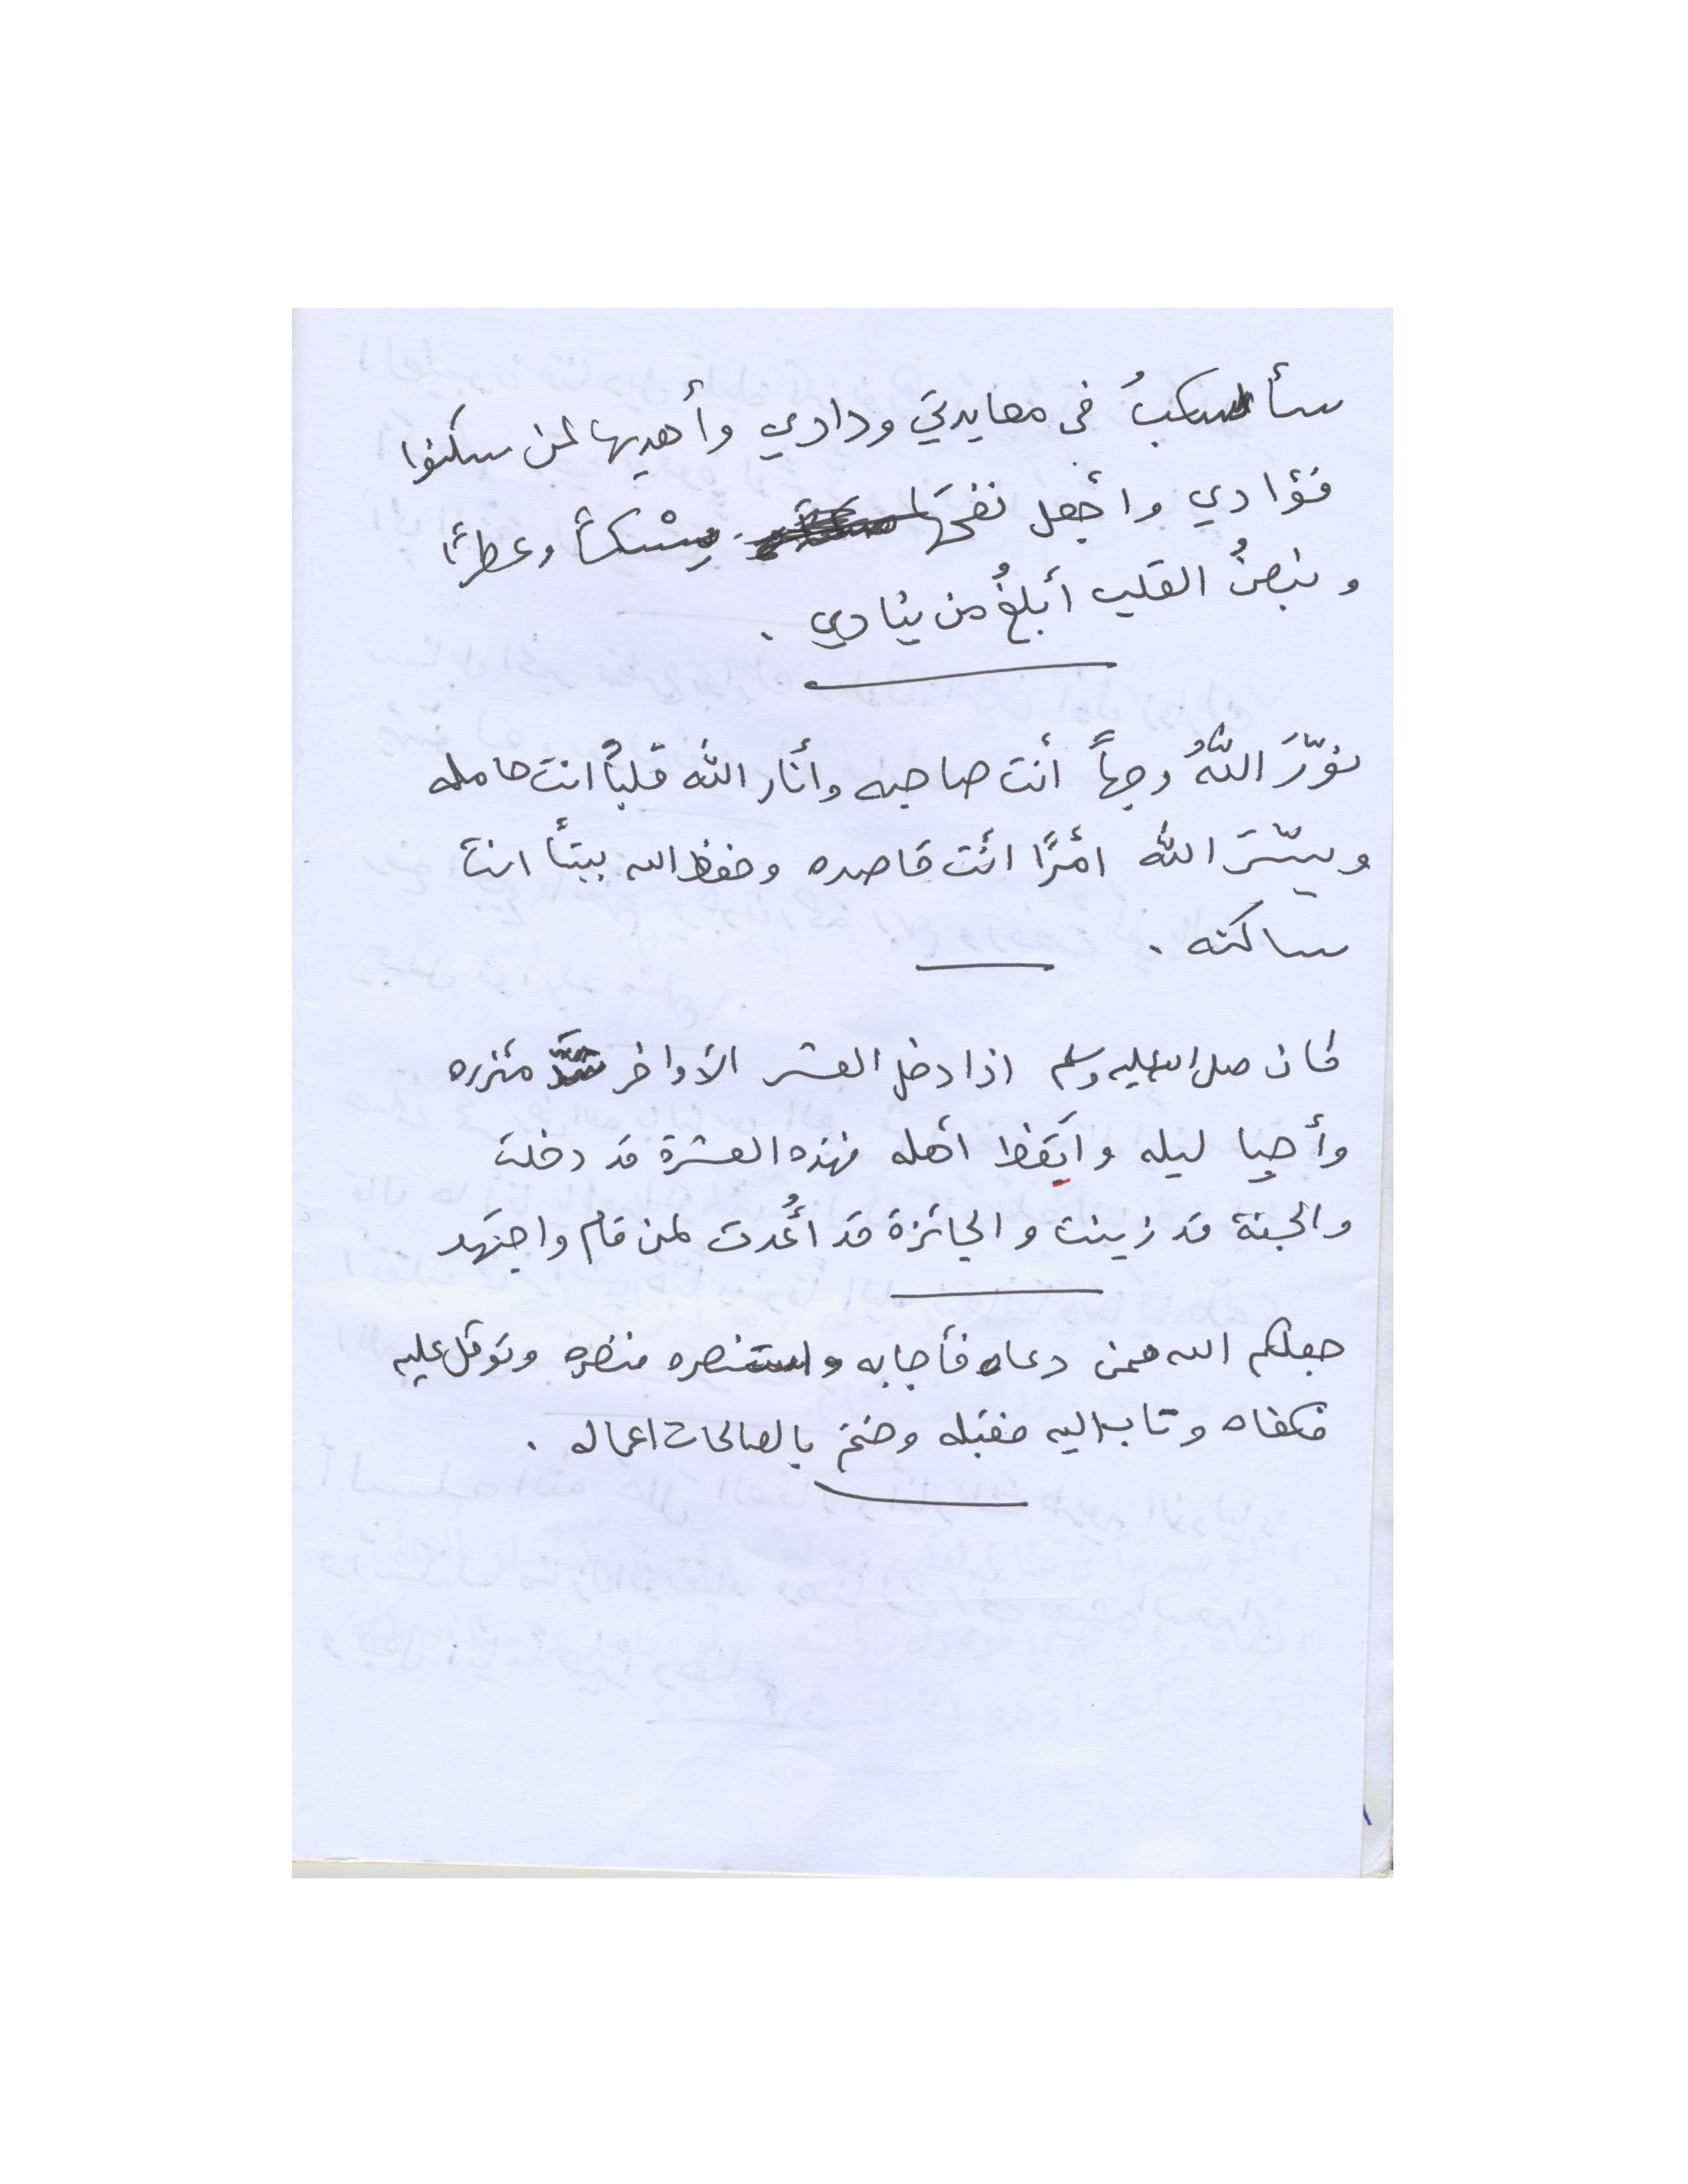 سأسكبُ فى معايدتي ودادي وأهديها لمن سكنوا
فؤادي واجعل نفحَها مِسْكاً وعطرًا
ونبضُ القلب أبلغُ من ينادي .
نوّرَ اللهُ وجهاً أنت صاحبه وأنار الله قلباً انت حامله
ويسّرَ الله امًرًا انت قاصده وحفظ الله بيتاً انت
ساكنه .
كان صلى الله عليه وسلم اذا دخل العشر الأواخر شدَّ مئزره
وأحيا ليله وأيقظ اهله فهذه العشرة قد دخلت
والجنة قد زينت والجائزة قد اُعدت لمن قام واجتهد
جعلكم الله ممن دعاه فأجابه واستنصره فنصره وتوكل عليه
فكفاه وتاب اليه فقبله وختم بالصالحات اعماله .